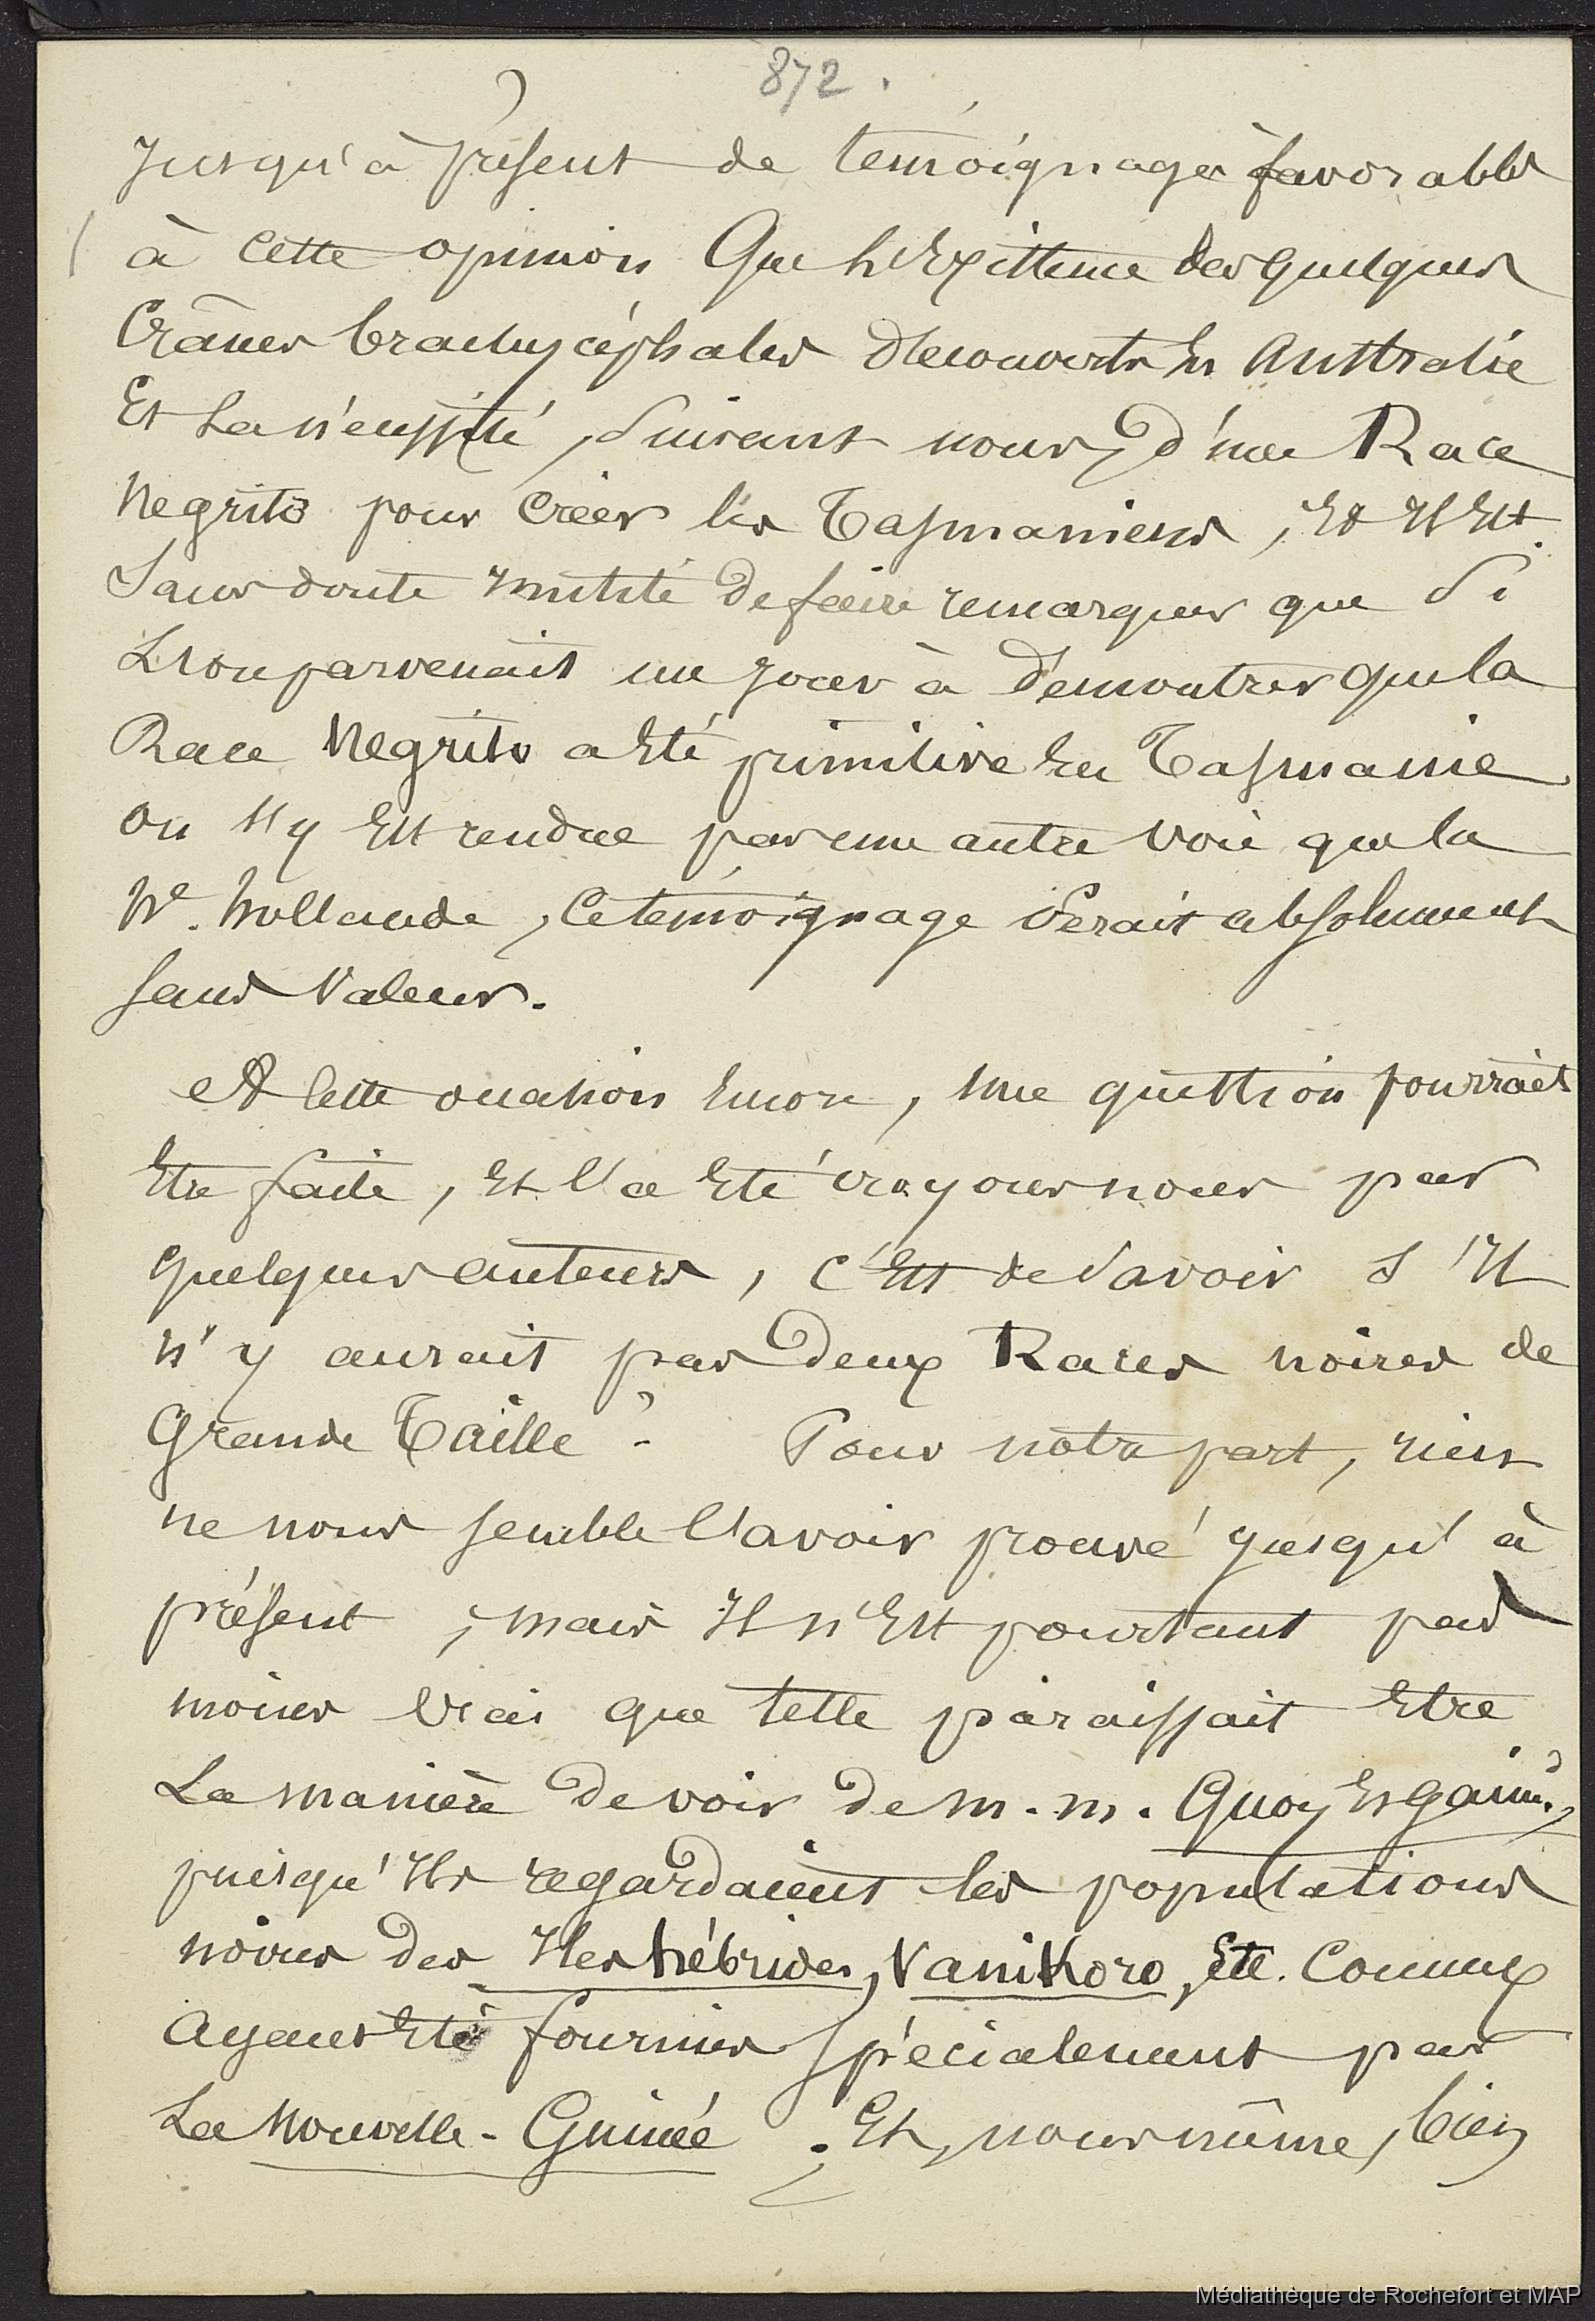 872.
jusqu'à présent de témoignages favorables
à cette opinion que l'existence des quelques
Crânes brachycéphales découverts en Australie
Et la nécessité, suivant nous, d'une Race
Negrito pour créer les Tasmaniens, Et il Est
sans doute inutile de faire remarquer que si
L'on parvenait un jour à démontrer que la
Race Negrito a Eté primitive En Tasmanie
ou s'y Est rendue par une autre voie que la
Nle. hollande, Ce témoignage serait absolument
sans valeur.
A Cette occasion Encore, une question pourrait
Etre faite, Et l'a Eté croyons nous par
quelques auteurs, C'Est de savoir s'Il
n'y aurait pas deux Races noires de
Grande Taille? Pour notre part, rien
ne nous semble l'avoir prouvé jusqu'à
présent, mais Il n'Est pourtant pas
moins vrai que telle paraissait Etre
La manière de voir de m. m. Quoy Et Gaim.d,
puisqu'Ils regardaient les populations
noires des Iles hébrides, Vanikoro, Etc. Comme
Ayant Eté fournies spécialement par
La Nouvelle-Guinée; Et, nous même, bien
Médiathèque de Rochefort et MAP